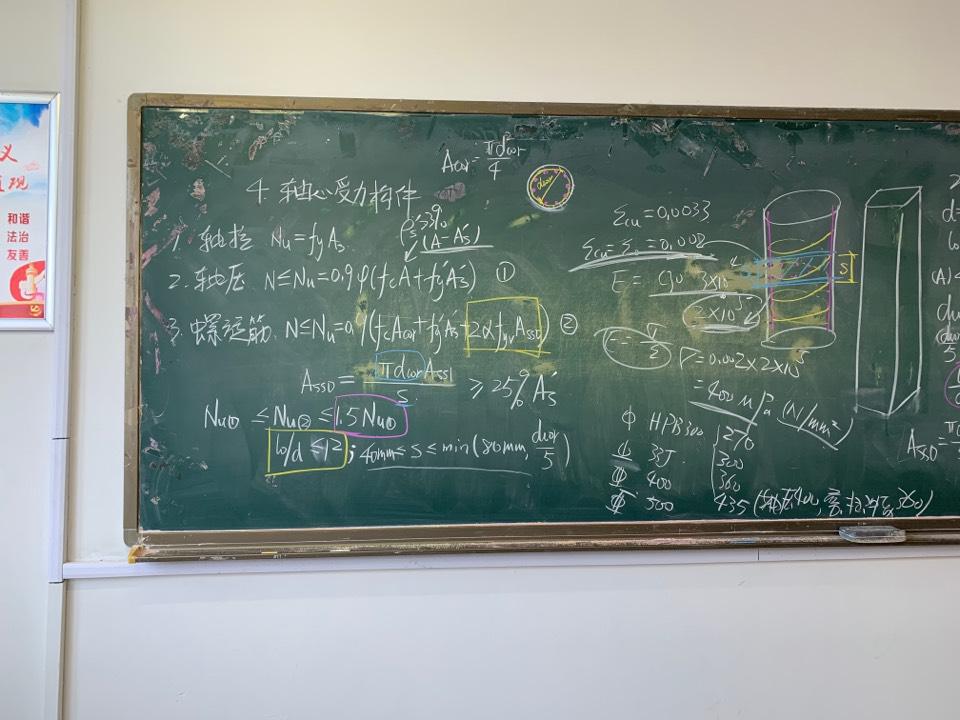 义
现
和谐
法治
友善
Acor = πdcor/4
dcor
4. 轴心受力构件
1. 轴拉 Nu = fyAs
ρs'>3%
(A-As')
2. 轴压 N≤Nu=0.9φ(fcA+fy'As') ①
3. 螺旋筋 N≤Nu=0.9(fcAcor+fy'As'+2αfyvAsso) ②
Asso = πdcorAss1/S ≥25%As'
Nu① ≤Nu② ≤1.5Nu①
lo/d ≤12; 40mm≤S≤min(80mm, dcor/5)
Σcu = 0.0033
Σcu = Σo = 0.002
E = 3×10
2×10⁵
S
E = σ/Σ
σ = 0.002×2×10⁵
= 400 MPa (N/mm²)
Φ HPB300 270
Φ 335 300
Φ 400 360
Φ 500 435 (轴压400, 360)
d=
lo
(A)
dcor
dcor
5
Asso =